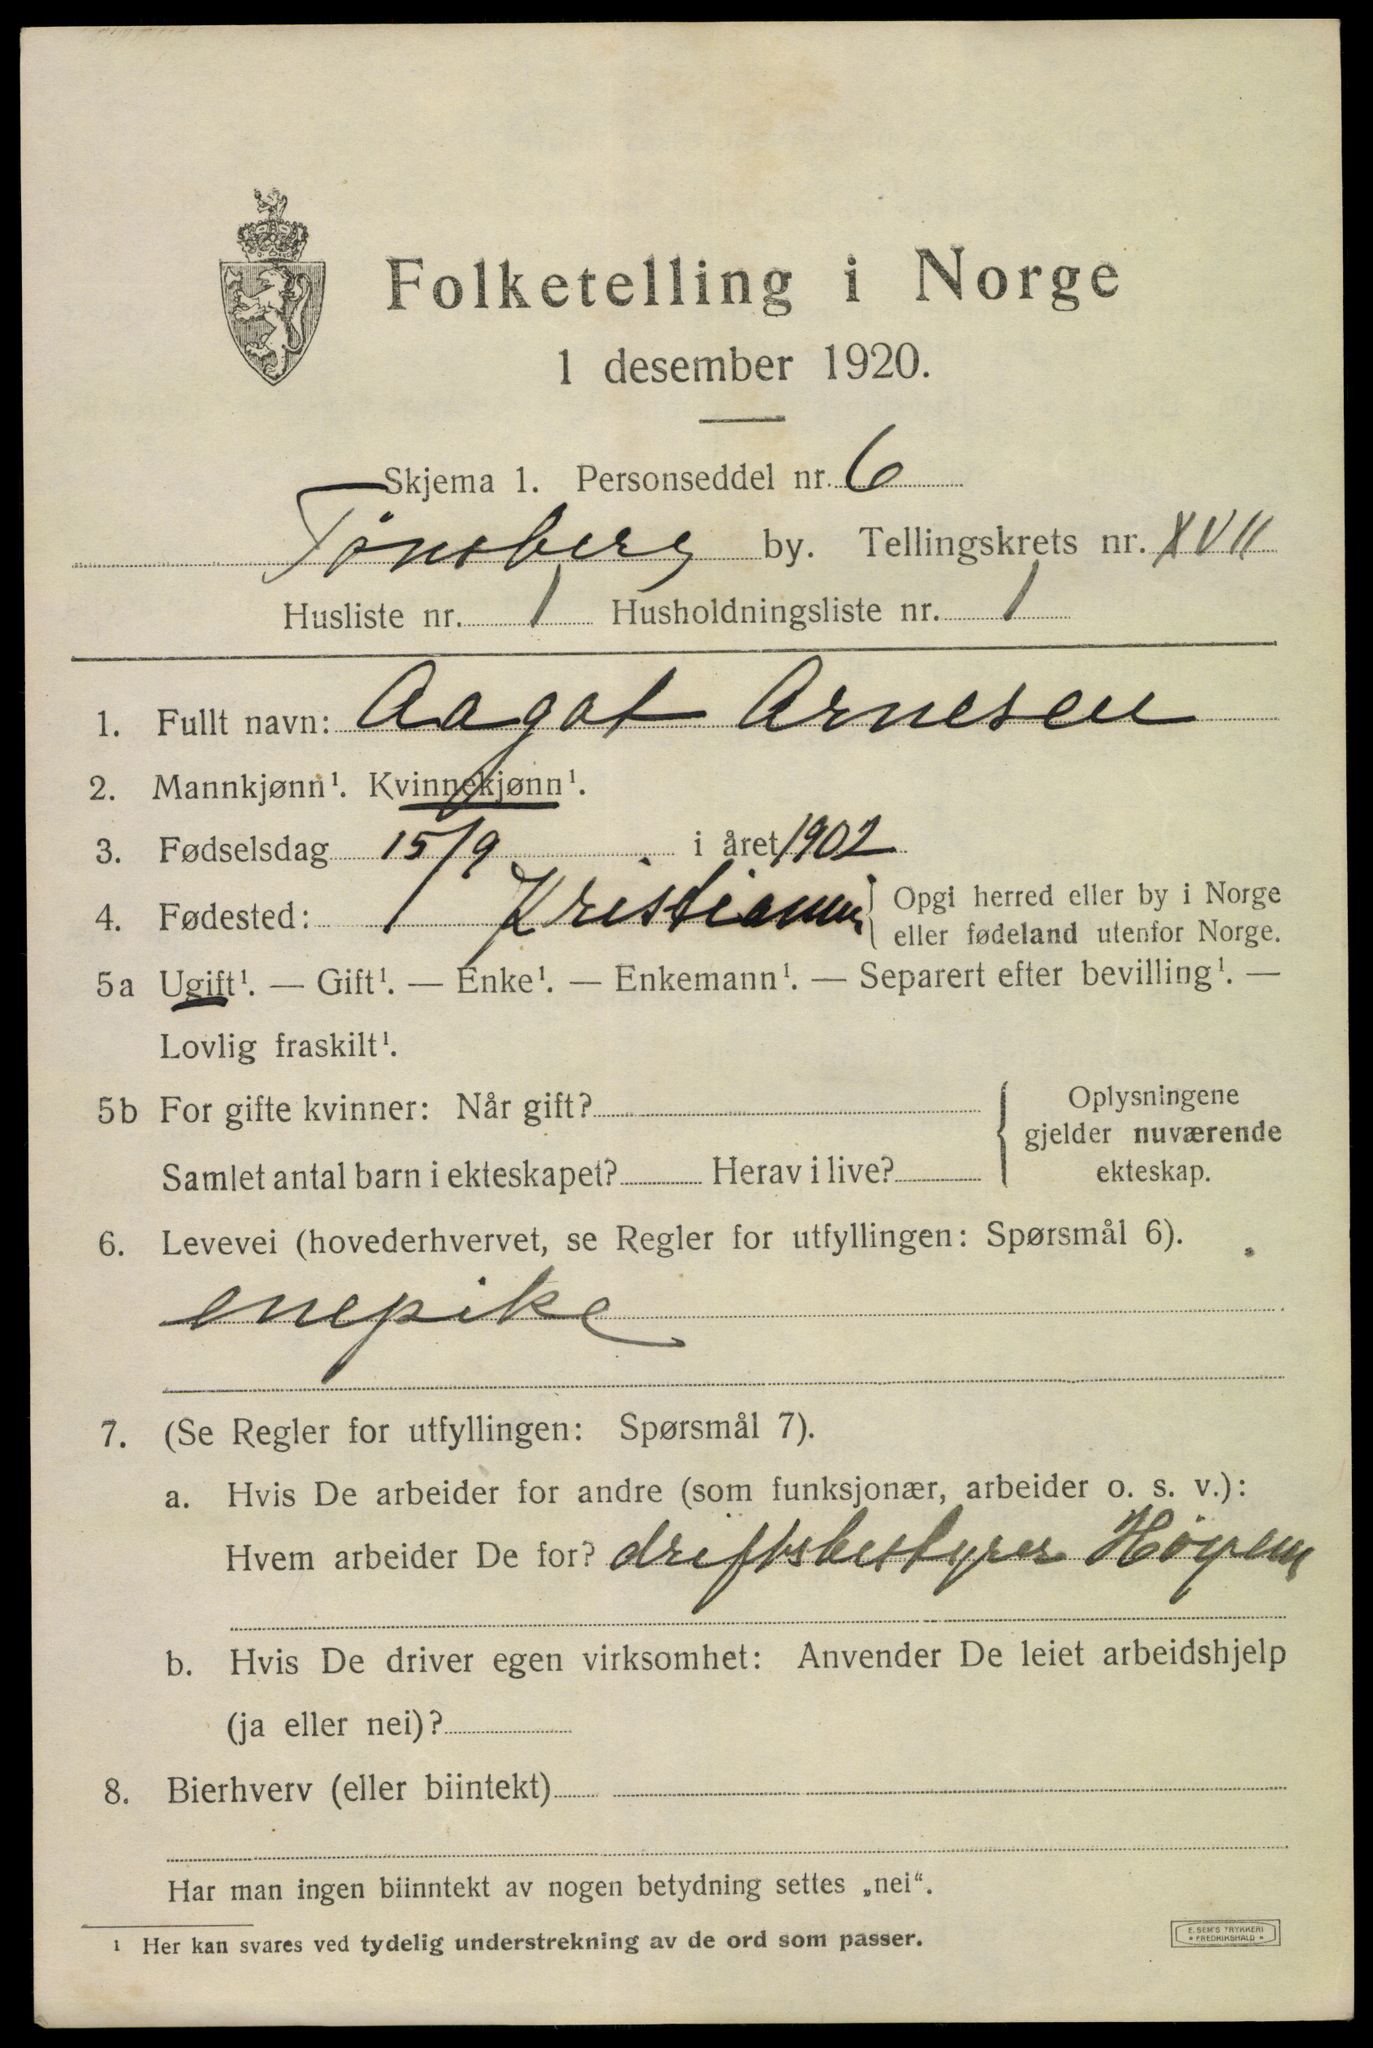 Folketelling i Norge
1 desember 1920.
Skjema 1. Personseddel nr. 6
Tønsberg by. Tellingskrets nr. XVII
Husliste nr. 1 Husholdningsliste nr. 1
1. Fullt navn: Aagot Arnesen
2. Mannkjønn¹. Kvinnekjønn¹.
3. Fødselsdag 15/9 i året 1902
4. Fødested: Kristiania { Opgi herred eller by i Norge
eller fødeland utenfor Norge.
5a Ugift¹. — Gift¹. — Enke¹. — Enkemann¹. — Separert efter bevilling¹. —
Lovlig fraskilt¹.
5b For gifte kvinner: Når gift?
Samlet antal barn i ekteskapet? Herav i live?
{ Oplysningene
gjelder nuværende
ekteskap.
6. Levevei (hovederhvervet, se Regler for utfyllingen: Spørsmål 6).
enepike
7. (Se Regler for utfyllingen: Spørsmål 7).
a. Hvis De arbeider for andre (som funksjonær, arbeider o. s. v.):
Hvem arbeider De for? driftsbestyrer Høyem
b. Hvis De driver egen virksomhet: Anvender De leiet arbeidshjelp
(ja eller nei)?
8. Bierhverv (eller biintekt)
Har man ingen biinntekt av nogen betydning settes „nei“.
¹ Her kan svares ved tydelig understrekning av de ord som passer.
E. SEM'S TRYKKERI
• FREDRIKSHALD •